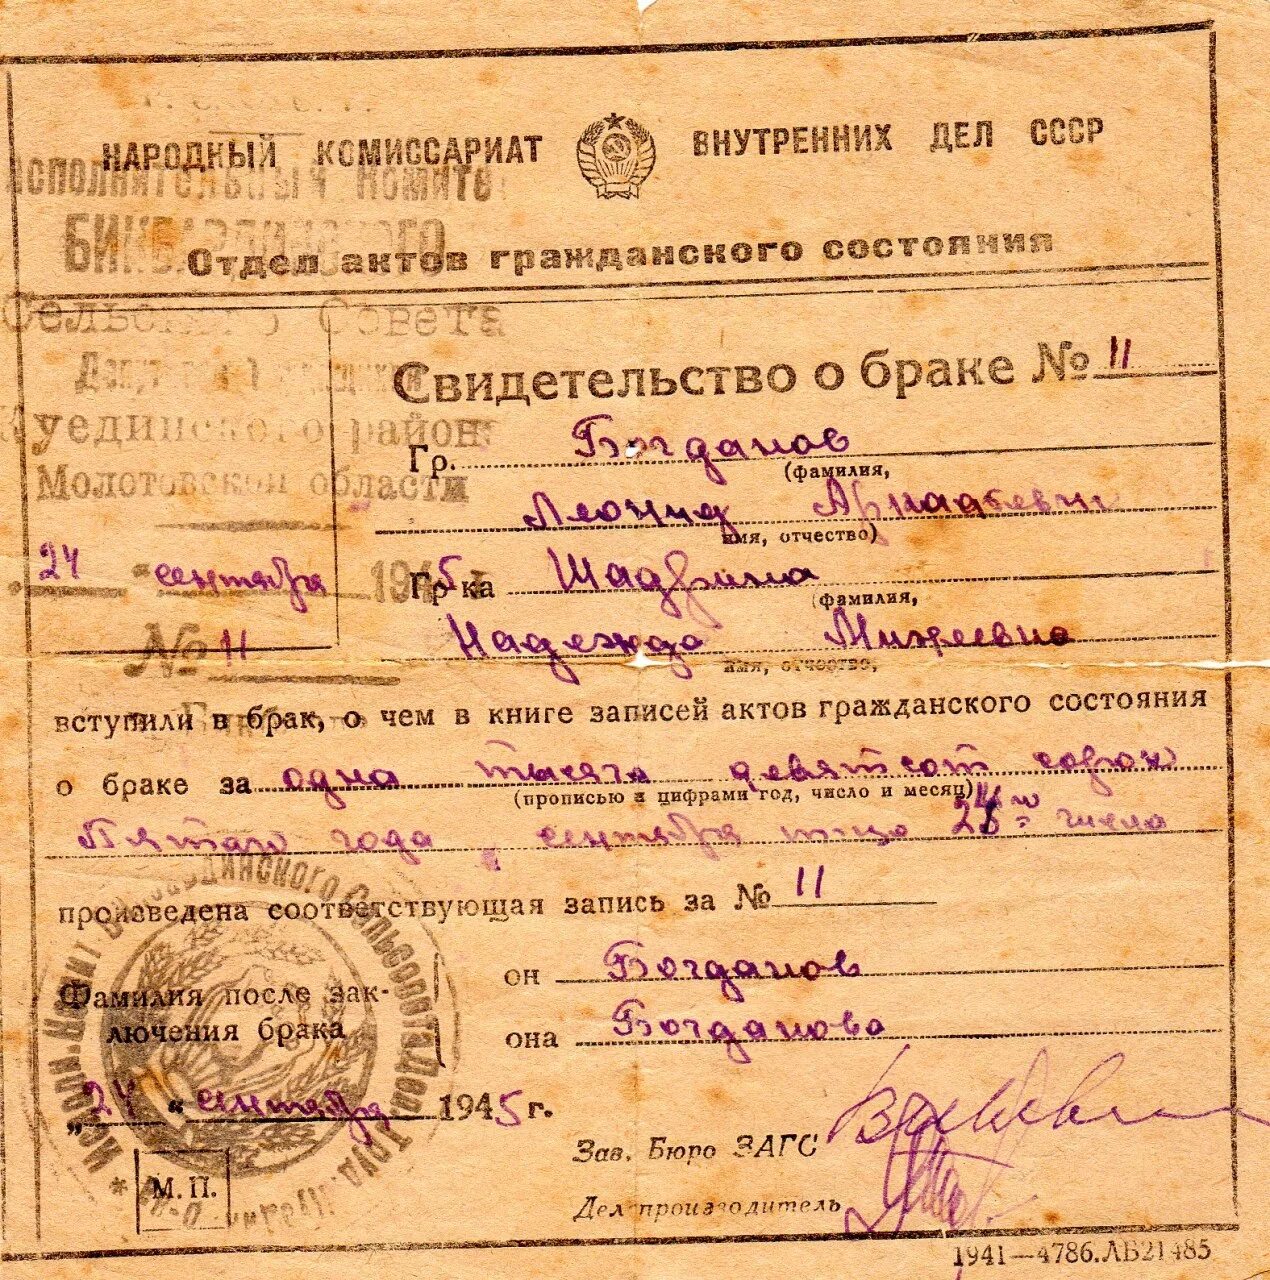 НАРОДНЫЙ КОМИССАРИАТ ВНУТРЕННИХ ДЕЛ СССР
Отдел актов гражданского состояния
ИСПОЛНИТЕЛЬНЫЙ КОМИТЕТ
БИКБАРДИНСКОГО
Сельского Совета
Депутатов Трудящихся
Куединского района
Молотовской области
24 " сентября 1945 г.
№ 11
Свидетельство о браке № 11
Гр. Богданов
(фамилия,
Леонид Аркадьевич
имя, отчество)
Гр-ка Шадрина
(фамилия,
Надежда Михеевна
имя, отчество,
вступили в брак, о чем в книге записей актов гражданского состояния
о браке за одна тысяча девятсот сорок
(прописью и цифрами год, число и месяц)
Пятого года сентября м-ца 24 го числа
произведена соответствующая запись за № 11
Фамилия после зак-
лючения брака
он Богданов
она Богданова
„24 “ сентября 1945 г.
Зав. Бюро ЗАГС
М. П.
Делопроизводитель
1941—4786.ЛБ21485